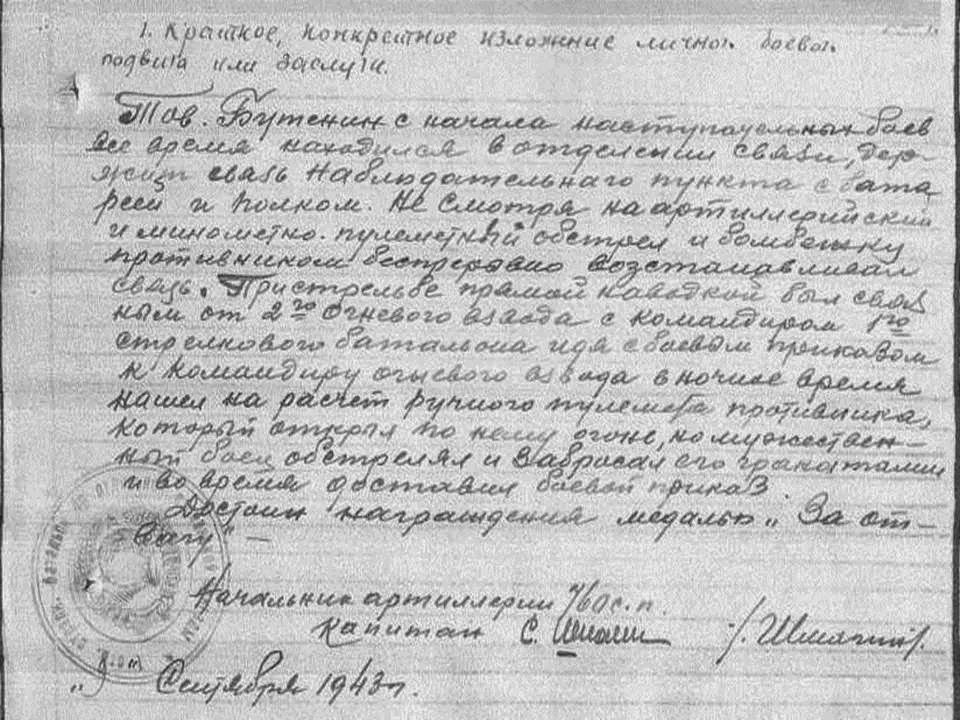 1. Краткое, конкретное изложение личног. боевог.
подвига или заслуги.
Тов. Бутенин с начала наступательных боев
все время находился в отделении связи, дер-
жит связь наблюдательнаго пункта с бата
реей и полком. Не смотря на артиллерийский
и минометно-пулеметный обстрел и бомбежку
противником беспрерывно возстанавливал
связь. При стрельбе прямой наводкой был связ
ным от 2го огневого взвода с командиром 1го
стрелкового батальона идя с боевым приказом
к командиру огневого взвода в ночное время
нашел на расчет ручного пулемета противника,
который открыл по нему огонь, но мужествен-
ный боец обстрелял и забросал его гранатами
и во время доставил боевой приказ.
Достоин награждения медалью „За от-
вагу" —
Начальник артиллерии 760 с.п.
капитан С.
„ " Сентября 1943 г.